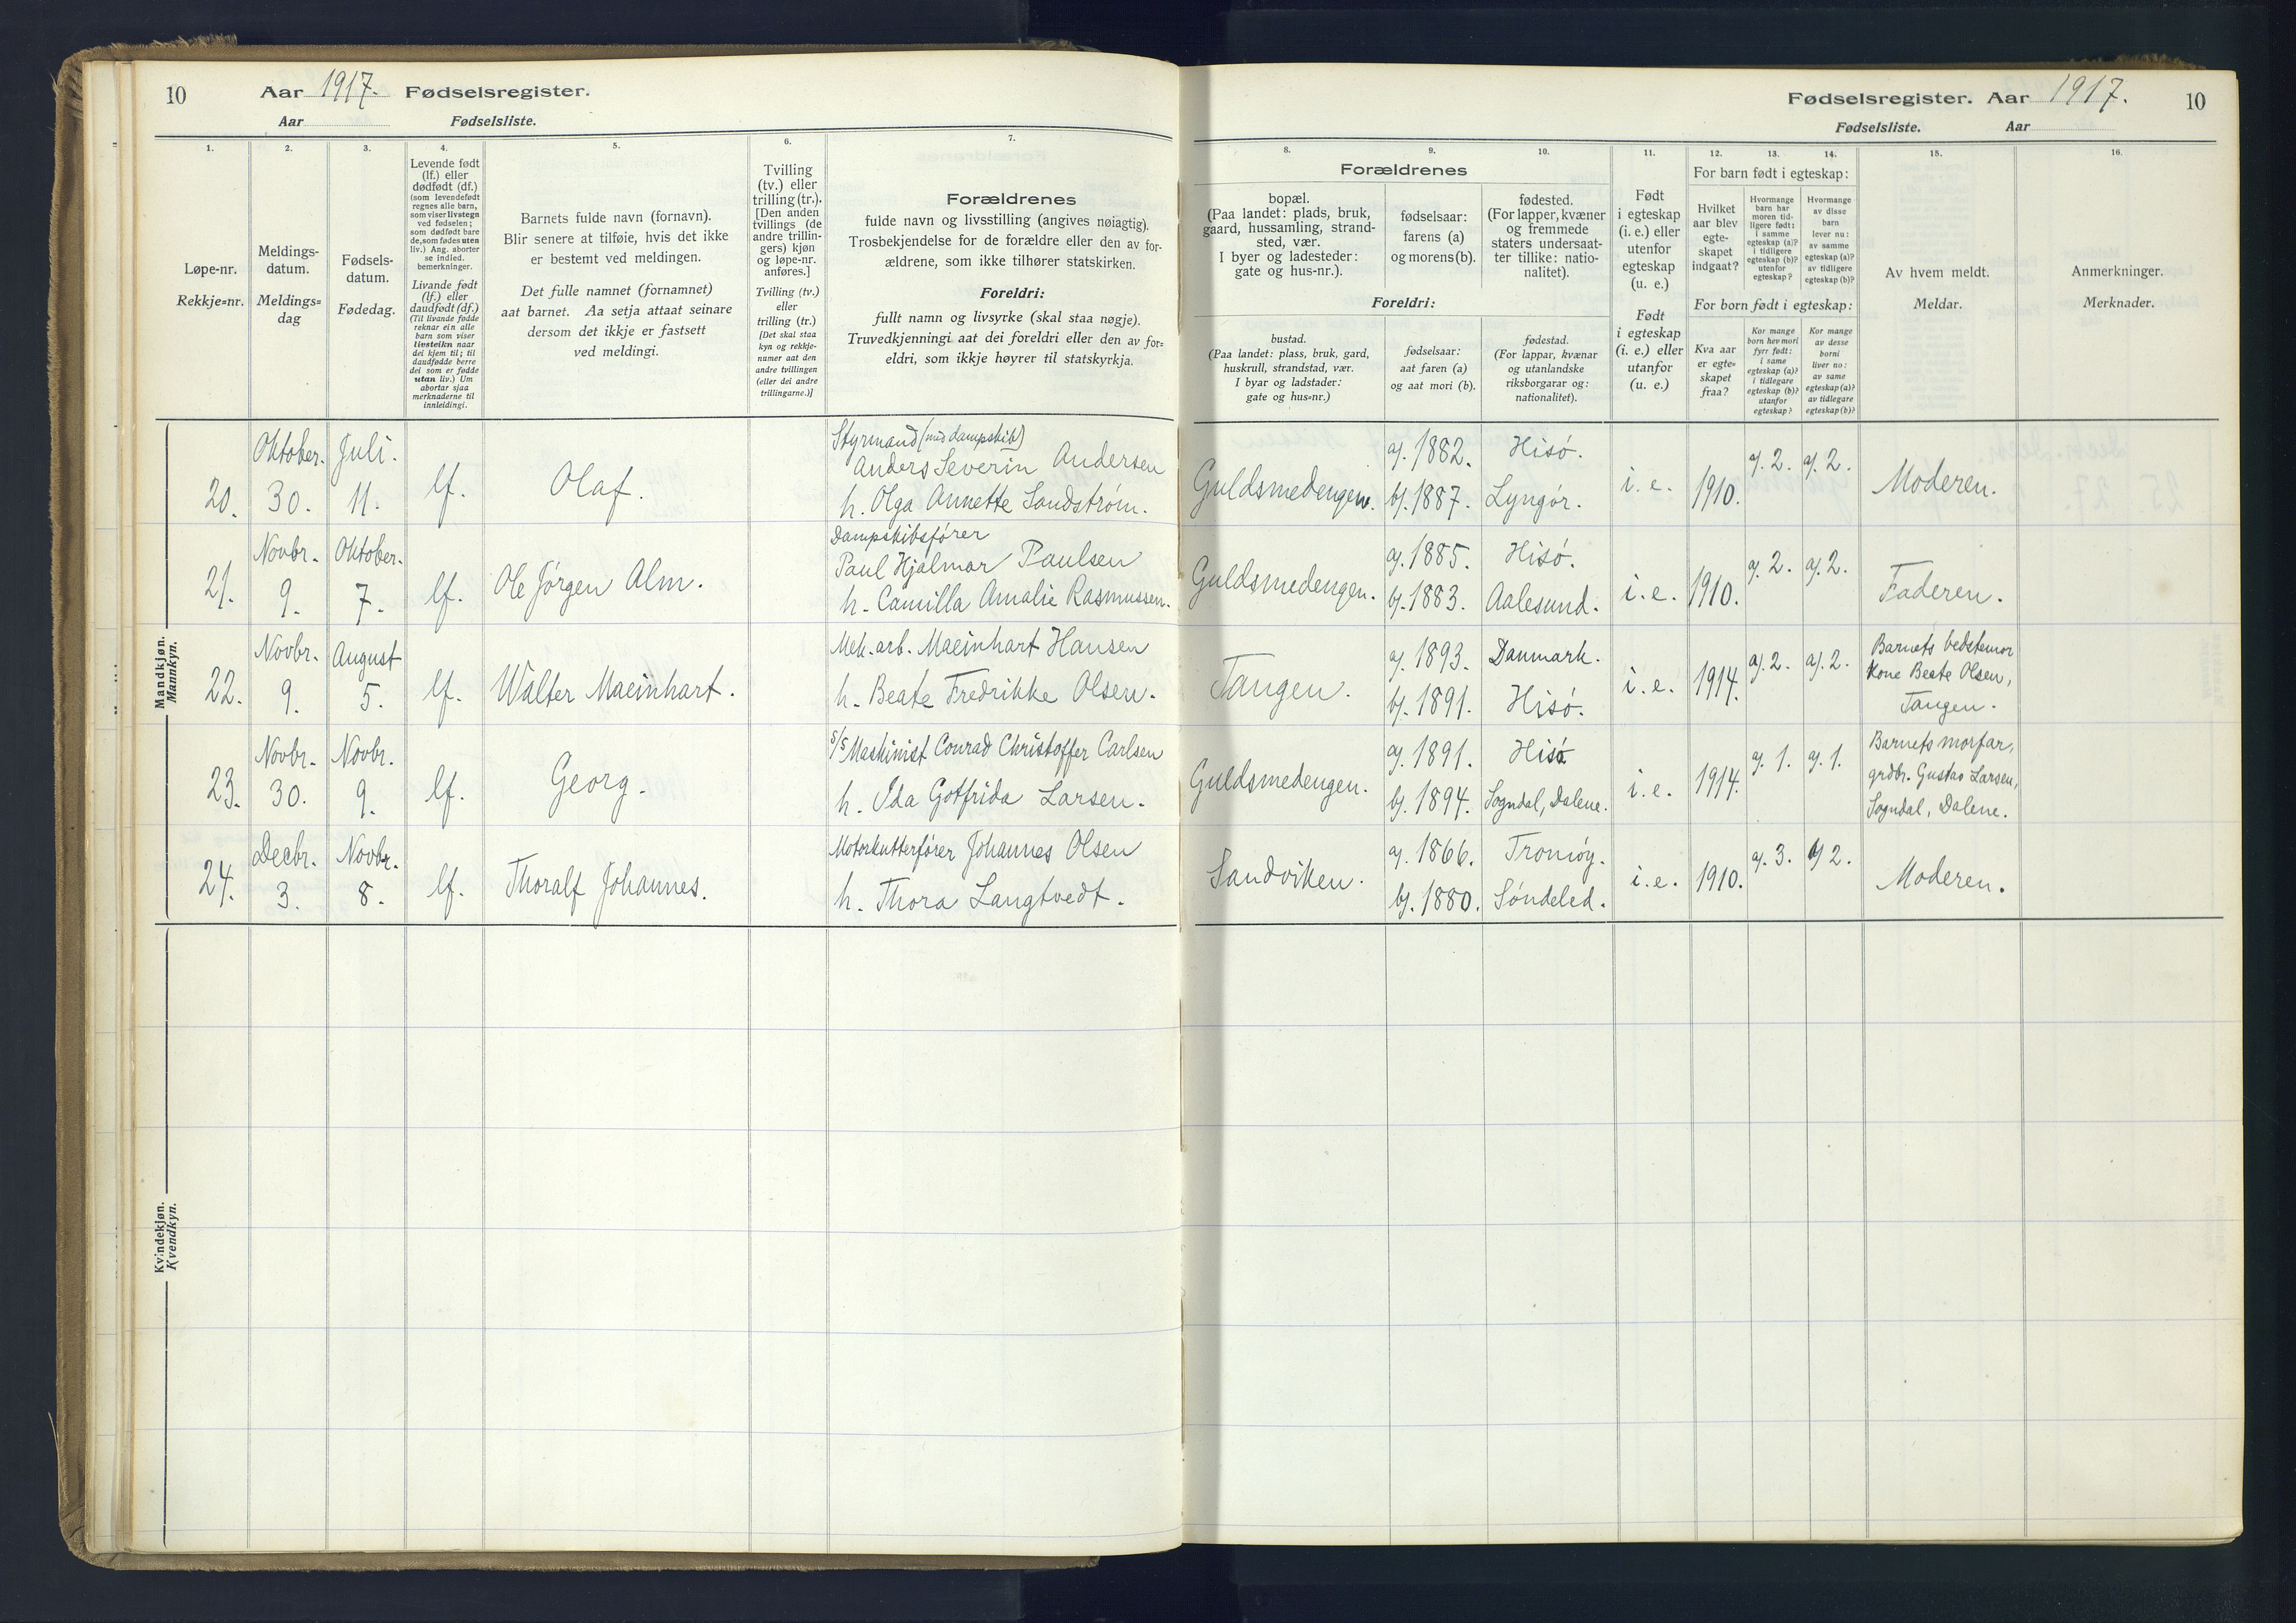 10
Aar 1917. Fødselsregister.
Aar Fødselsliste.
Fødselsregister. Aar 1917.
10
Fødselsliste. Aar
1.
Løpe-nr.
Rekkje=nr.
2.
Meldings-
datum.
Meldings=
dag
3.
Fødsels-
datum.
Fødedag.
4.
Levende født
(lf.) eller
dødfødt (df.)
(som levendefødt
regnes alle barn,
som viser livstegn
ved fødselen;
som dødfødt bare
de, som fødes uten
liv.) Ang. aborter
se indled.
bemerkninger.
Livande født
(lf.) eller
daudfødt (df.)
(Til livande fødde
reknar ein alle
barn som viser
livsteikn naar
dei kjem til; til
daudfødde berre
dei som er fødde
utan liv.) Um
abortar sjaa
merknaderne til
innleidingi.
5.
Barnets fulde navn (fornavn).
Blir senere at tilføie, hvis det ikke
er bestemt ved meldingen.
Det fulle namnet (fornamnet)
aat barnet. Aa setja attaat seinare
dersom det ikkje er fastsett
ved meldingi.
6.
Tvilling
(tv.) eller
trilling (tr.).
[Den anden
tvillings (de
andre trillin-
gers) kjøn
og løpe-nr.
anføres.]
Tvilling (tv.)
eller
trilling (tr.)
[Det skal staa
kyn og rekkje-
numer aat den
andre tvillingen
(eller dei andre
trillingarne.)]
7.
Forældrenes
fulde navn og livsstilling (angives nøiagtig).
Trosbekjendelse for de forældre eller den av for-
ældrene, som ikke tilhører statskirken.
Foreldri:
fullt namn og livsyrke (skal staa nøgje).
Truvedkjenningi aat dei foreldri eller den av for=
eldri, som ikkje høyrer til statskyrkja.
Forældrenes
8.
bopæl.
(Paa landet: plads, bruk,
gaard, hussamling, strand-
sted, vær.
I byer og ladesteder:
gate og hus-nr.).
9.
fødselsaar:
farens (a)
og morens (b).
10.
fødested.
(For lapper, kvæner
og fremmede
staters undersaat-
ter tillike: natio-
nalitet).
Foreldri:
bustad.
(Paa landet: plass, bruk, gard,
huskrull, strandstad, vær.
I byar og ladstader:
gate og hus=nr.)
fødselsaar:
aat faren (a)
og aat mori (b).
fødestad.
(For lappar, kvænar
og utanlandske
riksborgarar og:
nationalitet).
11.
Født
i egteskap
(i. e.) eller
utenfor
egteskap
(u. e.)
Født
i egteskap
(i. e.) eller
utanfor
(u. e.)
12. 13. 14.
For barn født i egteskap:
Hvilket
aar blev
egte-
skapet
indgaat?
Hvormange
barn har
moren tid-
ligere født:
i samme
egteskap (a)?
i tidligere
egteskap (b)?
utenfor
egteskap?
Hvormange
av disse
barn
lever nu:
av samme
egteskap (a)?
av tidligere
egteskap (b)?
For born født i egteskap:
Kva aar
er egte-
skapet
fraa?
Kor mange
born hev mori
fyrr født:
i same
egteskap (a)?
i tidlegare
egteskap (b)?
utanfor
egteskap?
Kor mange
av desse
borni
liver no:
av same
egteskap (a)?
av tidlegare
egteskap (b)?
15.
Av hvem meldt.
Meldar.
16.
Anmerkninger.
Merknader.
Mandkjøn.
Mannkyn.
20. Oktober. 30. Juli. 11. lf. Olaf.
Styrmand (med dampskib)
Anders Severin Andersen
h. Olga Annette Sandstrøm.
Guldsmedengen. a/. 1882. Hisø.
b/. 1887. Lyngør. i. e. 1910. a/. 2. a/. 2. Moderen.
21. Novbr. 9. Oktober. 7. lf. Ole Jørgen Alm.
Dampskibsfører
Paul Hjalmar Paulsen
h. Camilla Amalie Rasmussen.
Guldsmedengen. a/. 1885. Hisø.
b/. 1883. Aalesund. i. e. 1910. a/. 2. a/. 2. Faderen.
22. Novbr. 9. August 5. lf. Walter Maeinhart.
Mek. arb. Maeinhart Hansen
h. Beate Fredrikke Olsen.
Tangen. a/. 1893. Danmark.
b/. 1891. Hisø. i. e. 1914. a/. 2. a/. 2.
Barnets bedstemor
Kone Beate Olsen,
Tangen.
23. Novbr. 30. Novbr. 9. lf. Georg.
S/S Maskinist Conrad Christoffer Carlsen
h. Ida Gotfrida Larsen.
Guldsmedengen. a/. 1891. Hisø
b/. 1894. Sogndal, Dalene. i. e. 1914. a/. 1. a/. 1.
Barnets morfar,
grdbr. Gustav Larsen,
Sogndal, Dalene.
24. Decbr. 3. Novbr. 8. lf. Thoralf Johannes.
Motorkutterfører Johannes Olsen
h. Thora Langtvedt.
Sandviken. a/. 1866. Tromøy.
b/. 1880. Søndeled. i. e. 1910. a/. 3. a/ 2. Moderen.
Kvindekjøn.
Kvendkyn.